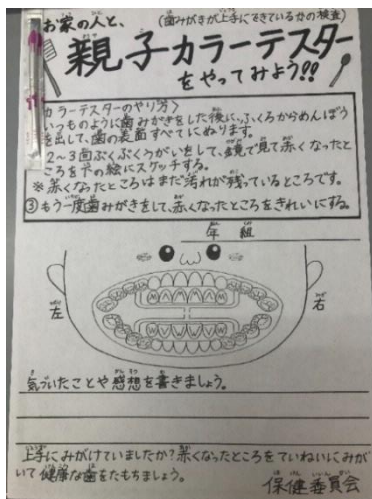 お家の人と、(歯みがきが上手にできているかの検査)
親子カラーテスター
をやってみよう!!
カラーテスターのやり方〉
いつものように歯みがきをした後に、ふくろからめんぼう
を出して、歯の表面すべてにぬります。
2〜3回ぶくぶくうがいをして、鏡で見て赤くなったと
ころを下の絵にスケッチする。
※赤くなったところはまだ汚れが残っているところです。
③もう一度歯みがきをして、赤くなったところをきれいにする。
年 組
左
右
気づいたことや感想を書きましょう。
上手にみがけていましたか?赤くなったところをていねいにみが
いて健康な歯をたもちましょう。
保健委員会